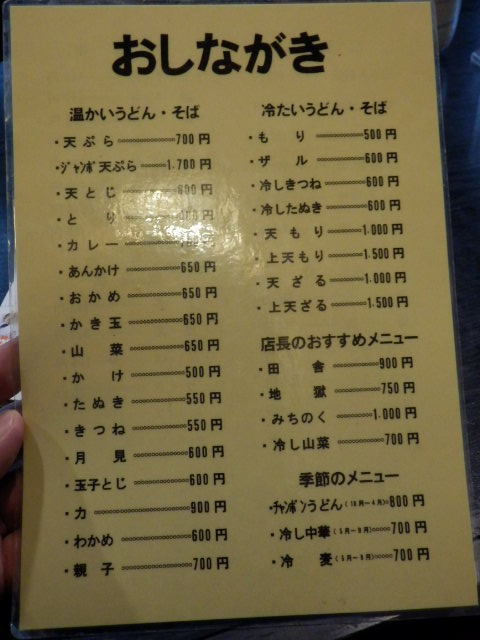 おしながき
温かいうどん・そば
・天ぷら 700円
・ジャンボ天ぷら 1,700円
・天とじ 800円
・とり
・カレー 700円
・あんかけ 650円
・おかめ 650円
・かき玉 650円
・山菜 650円
・かけ 500円
・たぬき 550円
・きつね 550円
・月見 600円
・玉子とじ 600円
・力 900円
・わかめ 600円
・親子 700円
冷たいうどん・そば
・もり 500円
・ザル 600円
・冷しきつね 600円
・冷したぬき 600円
・天もり 1,000円
・上天もり 1,500円
・天ざる 1,000円
・上天ざる 1,500円
店長のおすすめメニュー
・田舎 900円
・地獄 750円
・みちのく 1,000円
・冷し山菜 700円
季節のメニュー
・チャンポンうどん(10月～4月) 800円
・冷し中華(5月～9月) 700円
・冷麦(5月～9月) 700円